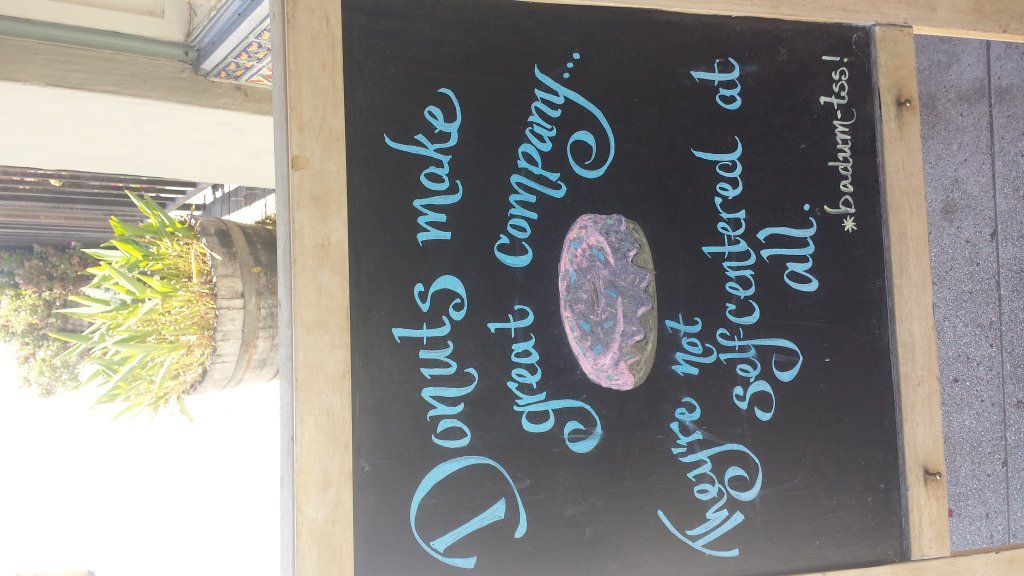 Donuts make
great company...
They're not
selfcentered at
all.
*badum-tss!